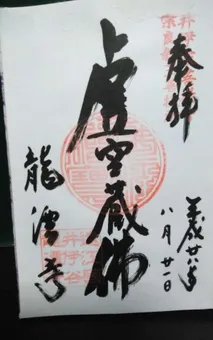 奉拝
平成廿八年
八月廿一日
虚空蔵佛
龍潭寺
井伊谷